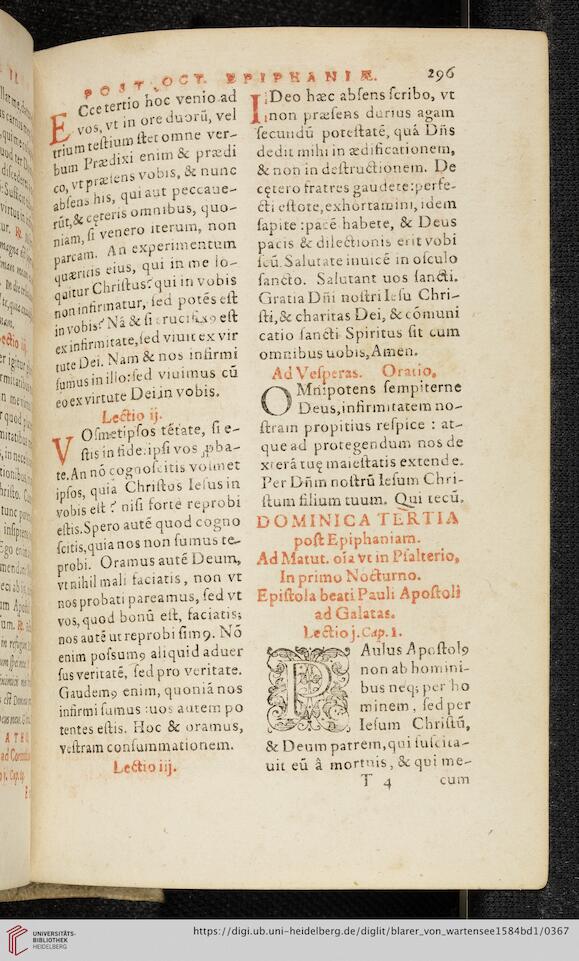 POST OCT. EPIPHANIÆ. 296
ECce tertio hoc venio ad
vos, vt in ore duorũ, vel
trium testium stet omne ver-
bum Prædixi enim & prædi
co, vt præsens vobis, & nunc
absens his, qui aut peccaue-
rũt, & cęteris omnibus, quo-
niam, si venero iterum, non
parcam. An experimentum
quæritis eius, qui in me lo-
quitur Christus? qui in vobis
non infirmatur, sed potẽs est
in vobis? Nã & si crucifixꝰ est
ex infirmitate, sed viuit ex vir
tute Dei. Nam & nos infirmi
sumus in illo: sed viuimus cũ
eo ex virtute Dei in vobis.
Lectio ij.
VOsmetipsos tẽtate, si e-
stis in fide: ipsi vos ꝓba-
te. An nõ cognoscitis vosmet
ipsos, quia Christus Iesus in
vobis est? nisi forte reprobi
estis. Spero autẽ quod cogno
scitis, quia nos non sumus re-
probi. Oramus autẽ Deum,
vt nihil mali faciatis, non vt
nos probati pareamus, sed vt
vos, quod bonũ est, faciatis;
nos autẽ ut reprobi simꝰ. Nõ
enim possumꝰ aliquid aduer
sus veritatẽ, sed pro veritate.
Gaudemꝰ enim, quoniã nos
infirmi sumus: uos autem po
tentes estis. Hoc & oramus,
vestram consummationem.
Lectio iij.
IDeo hæc absens scribo, vt
non præsens durius agam
secundũ potestatẽ, quã Dñs
dedit mihi in ædificationem,
& non in destructionem. De
cętero fratres gaudete: perfe-
cti estote, exhortamini, idem
sapite: pacẽ habete, & Deus
pacis & dilectionis erit vobi
scũ. Salutate inuicẽ in osculo
sancto. Salutant uos sancti.
Gratia Dñi nostri Iesu Chri-
sti, & charitas Dei, & cõmuni
catio sancti Spiritus sit cum
omnibus uobis, Amen.
Ad Vesperas. Oratio.
OMnipotens sempiterne
Deus, infirmitatem no-
stram propitius respice: at-
que ad protegendum nos de
xterã tuę maiestatis extende.
Per Dñm nostrũ Iesum Chri-
stum filium tuum. Qui tecũ.
DOMINICA TERTIA
post Epiphaniam.
Ad Matut. oĩa vt in Psalterio,
In primo Nocturno.
Epistola beati Pauli Apostoli
ad Galatas.
Lectio j. Cap. 1.
PAulus Apostolꝰ
non ab homini-
bus neq; per ho
minem, sed per
Iesum Christũ,
& Deum patrem, qui suscita-
uit eũ â mortuis, & qui me-
T 4 cum
UNIVERSITÄTS-
BIBLIOTHEK
HEIDELBERG
https://digi.ub.uni-heidelberg.de/diglit/blarer_von_wartensee1584bd1/0367